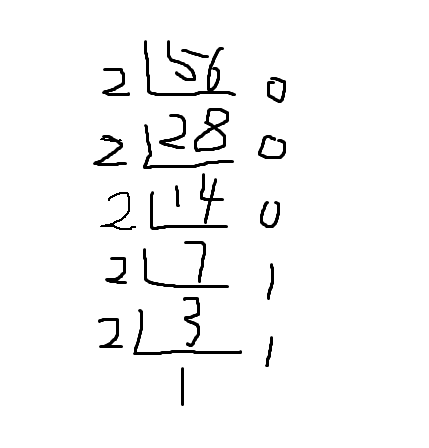 2 56 0
2 28 0
2 14 0
2 7 1
2 3 1
1